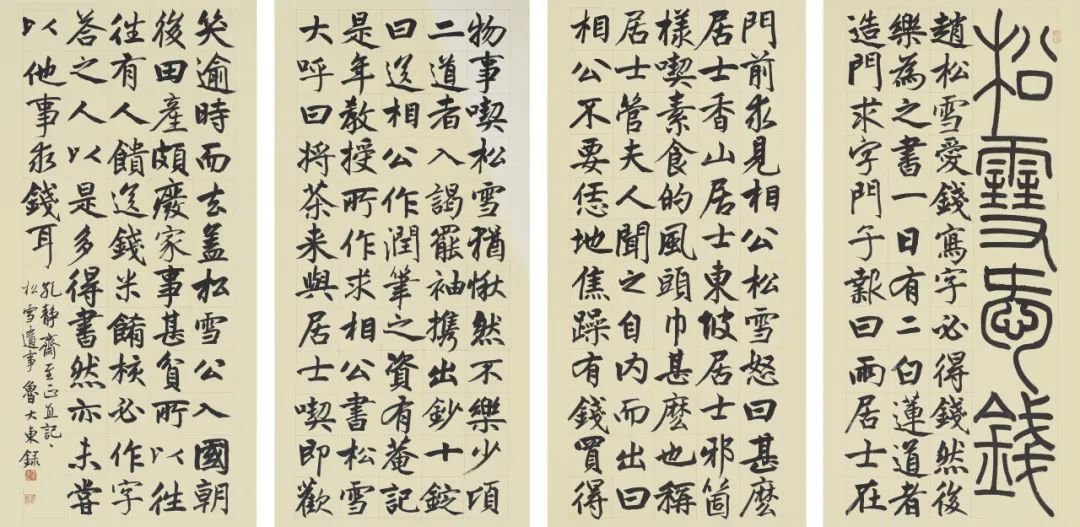 松雪愛錢
趙松雪愛錢寫字必得錢然後
樂為之書一日有二白蓮道者
造門求字門子報曰兩居士在
門前求見相公松雪怒曰甚麼
居士香山居士東坡居士邪箇
樣喫素食的風頭巾甚麼也稱
居士管夫人聞之自内而出曰
相公不要恁地焦躁有錢買得
物事喫松雪猶愀然不樂少頃
二道者入謁罷袖攜出鈔十錠
曰送相公作潤筆之資有菴記
是年教授所作求相公書松雪
大呼曰將茶来與居士喫即歡
笑逾時而去蓋松雪公入國朝
後田產頗廢家事甚貧所以往
往有人饋送錢米餚核必作字
答之人以是多得書然亦未嘗
以他事求錢耳
孔靜齋至正直記、
松雪遺事 魯大東録